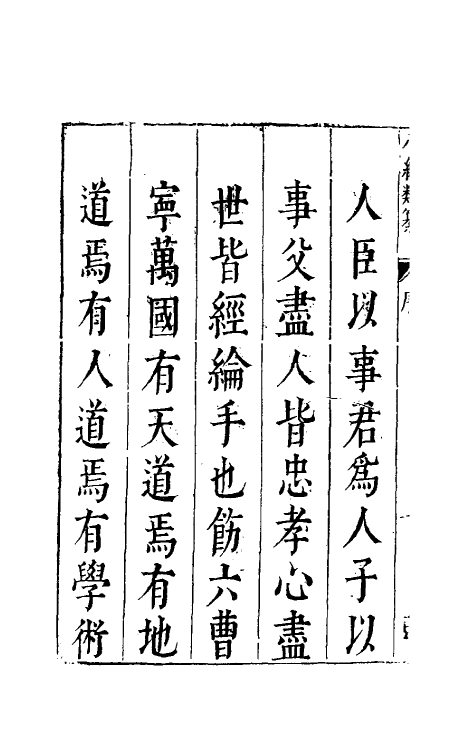 人臣以事君爲人子以
事父盡人皆忠孝心盡
世皆經綸手也飭六曹
寧萬國有天道焉有地
道焉有人道焉有學術